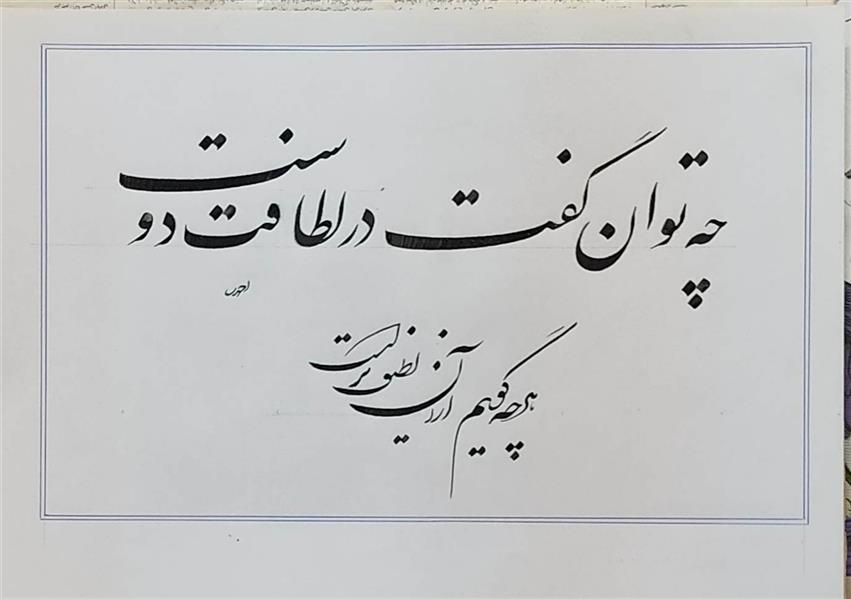 چه توان گفت در لطافت دوست
هرچه گویم از آن لطیف ترست